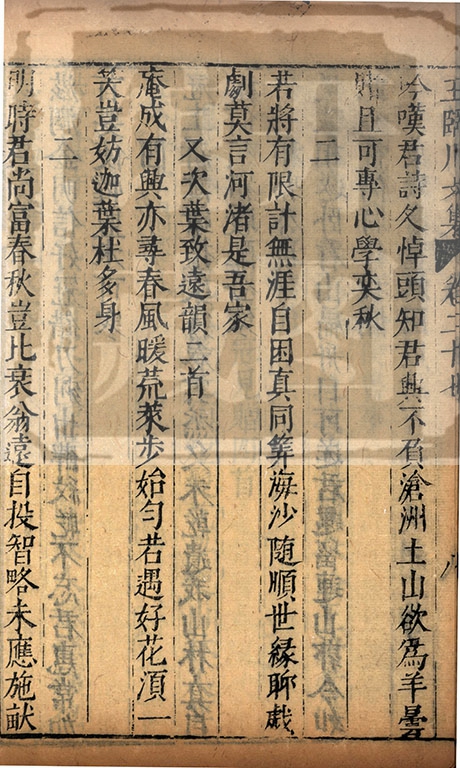 王臨川文集 卷二十七 八
吟嘆君詩久悼頭知君興不負滄洲土山欲爲羊曇
賭且可專心學奕秋
二
若將有限計無涯自困真同筭海沙隨順世緣聊戲
劇莫言河渚是吾家
又次葉致遠韻二首
庵成有興亦尋春風暖荒萊步始勻若遇好花湏一
笑豈妨迦葉杜多身
二
明時君尚富春秋豈比衰翁遠自投智略未應施献